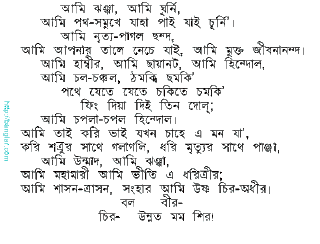 আমি ঝঞ্ঝা, আমি ঘূর্নি,
আমি পথ-সমুখে যাহা পাই যাই চূর্নি'।
আমি নৃত্য-পাগল ছন্দ,
আমি আপনার তালে নেচে যাই, আমি মুক্ত জীবনানন্দ।
আমি হাম্বীর, আমি ছায়ানট, আমি হিন্দোল,
আমি চল-চঞ্চল, ঠমকি ছমকি'
পথে যেতে যেতে চকিতে চমকি'
ফিং দিয়া দিই তিন দোল্;
আমি চপলা-চপল হিন্দোল।
আমি তাই করি ভাই যখন চাহে এ মন যা',
করি শর্ত্রুর সাথে গলাগলি, ধরি মৃত্যুর সাথে পাঞ্জা,
আমি উন্মাদ, আমি ঝঞ্ঝা,
আমি মহামারী আমি ভীতি এ ধরিত্রীর;
আমি শাসন-ত্রাসন, সংহার আমি উষ্ণ চির-অধীর।
বল বীর-
চির- উন্নত মম শির!